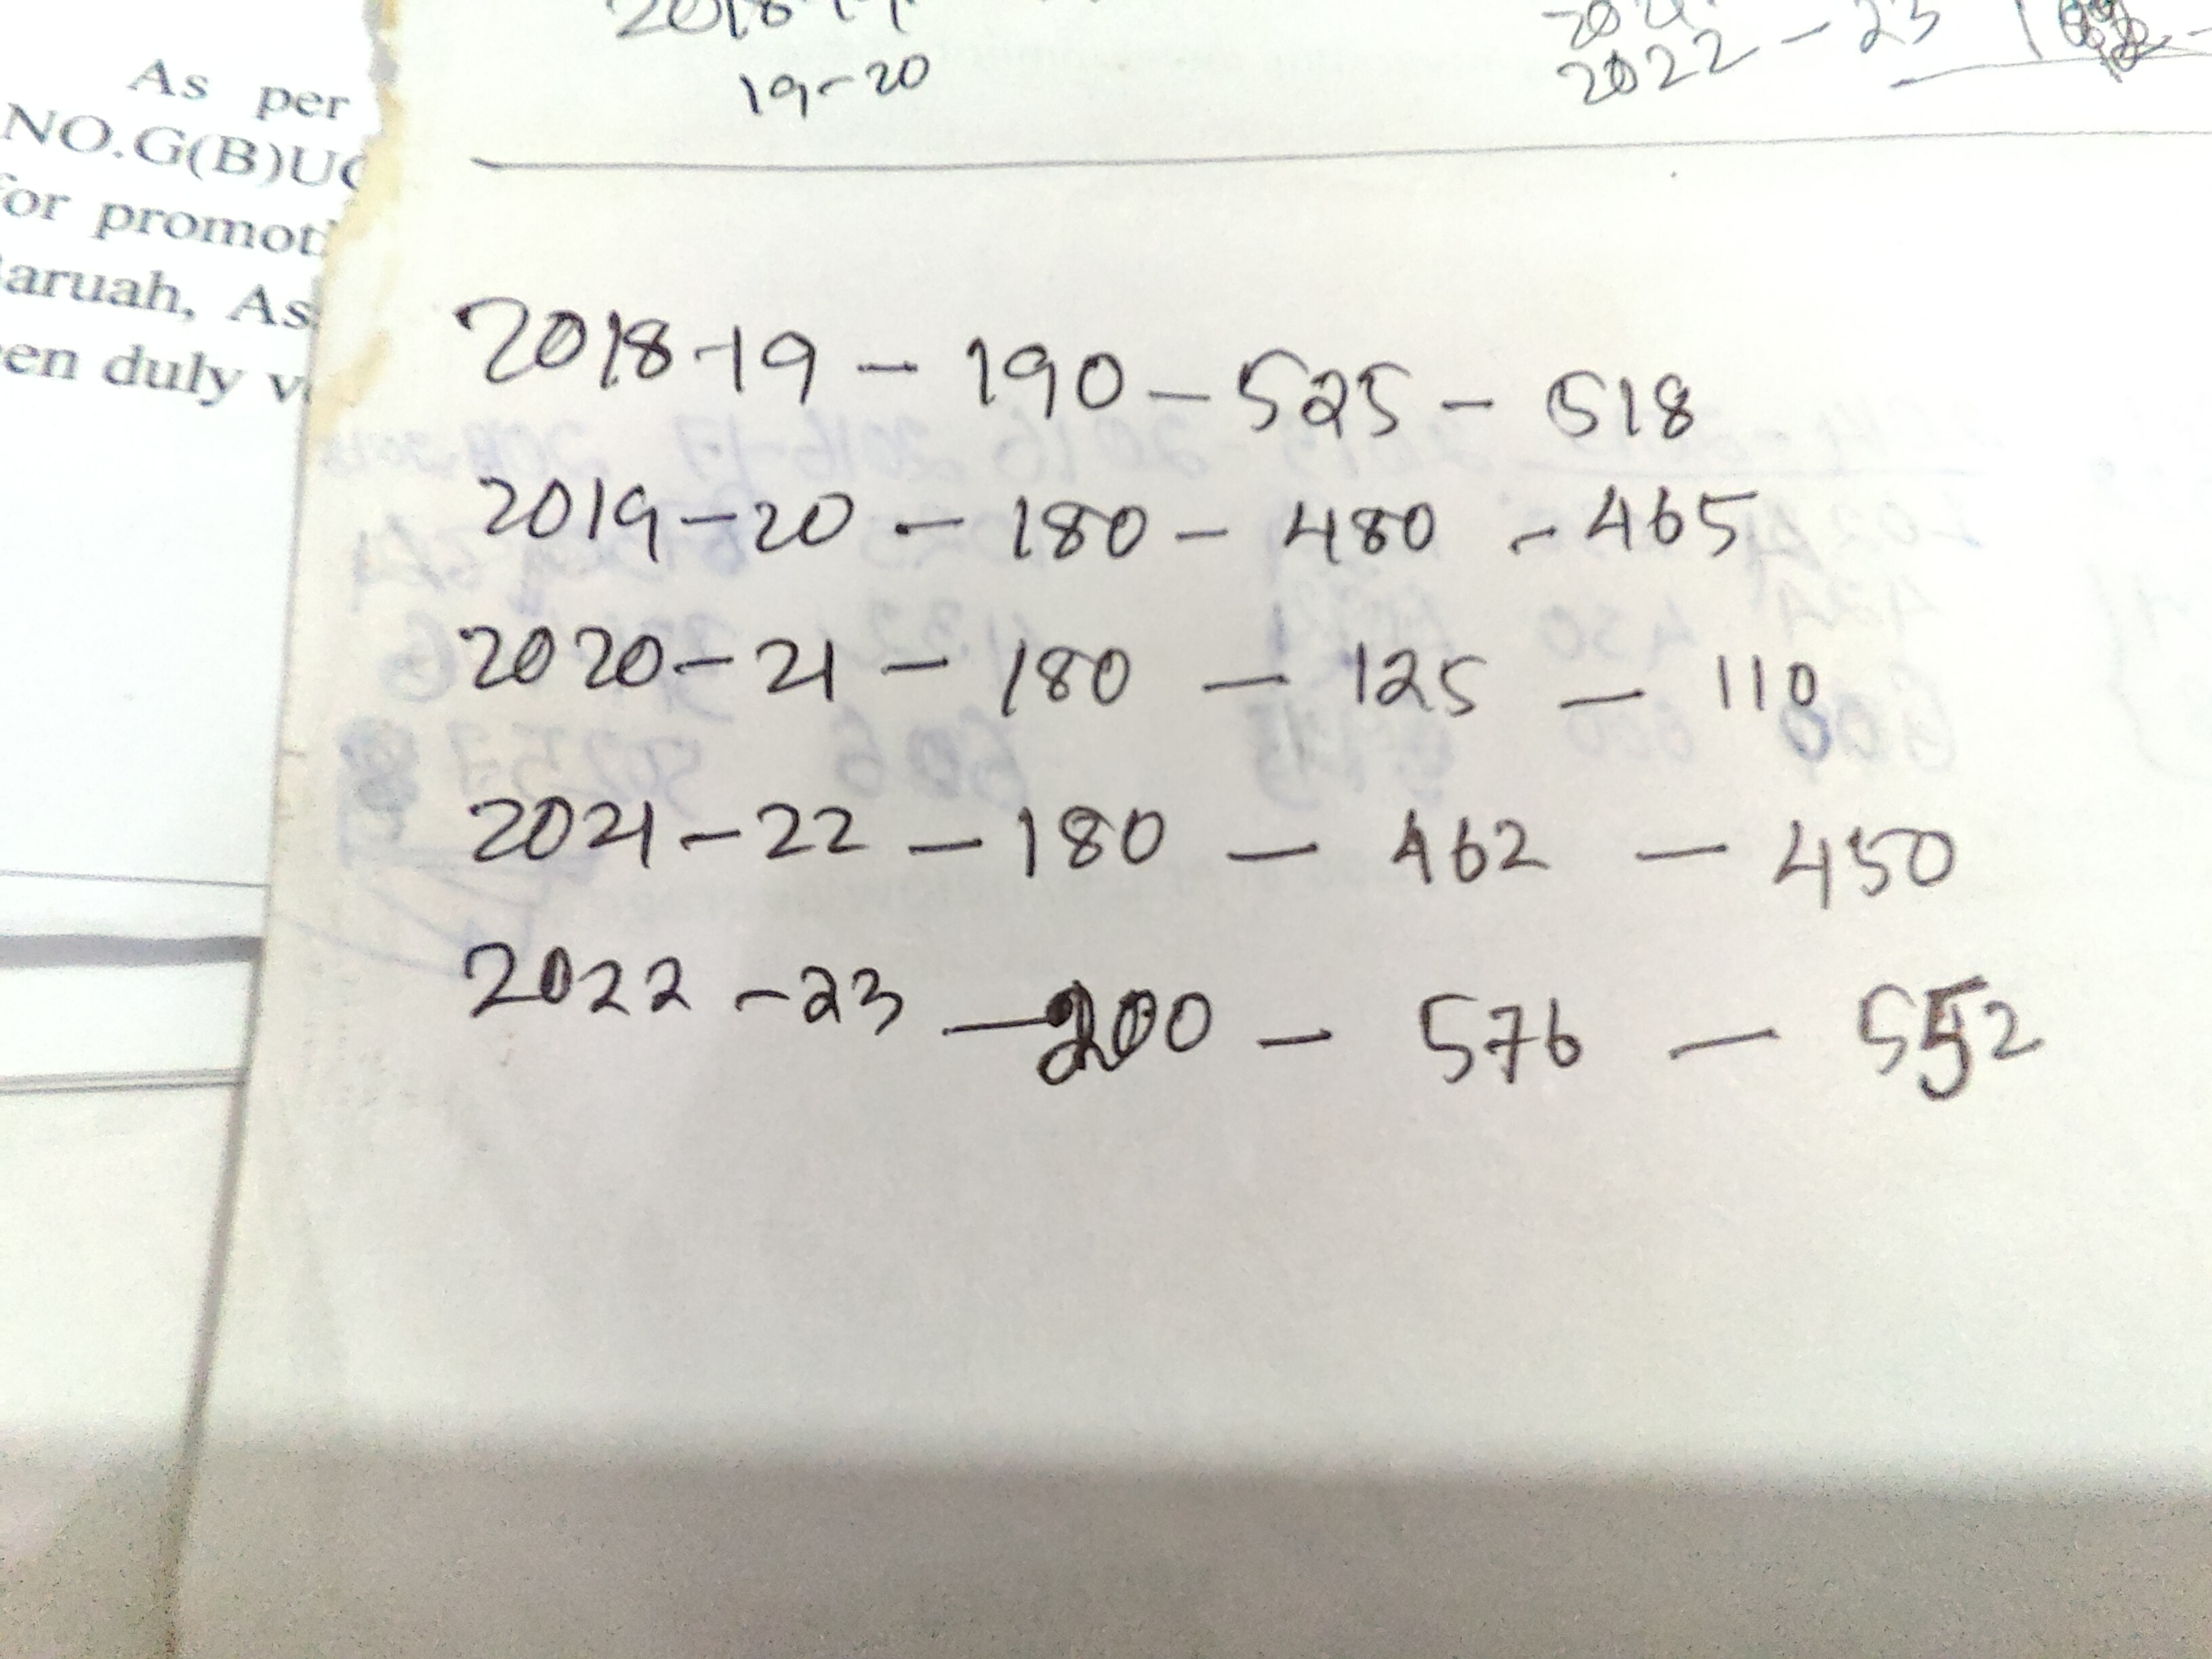 As per
NO.G(B)UC
for promoti
aruah, As
en duly v
2018-19
19-20
2022-23
2018-19 - 190 - 525 - 518
2019-20 - 180 - 480 - 465
2020-21 - 180 - 125 - 110
2021-22 - 180 - 462 - 450
2022-23 - 200 - 576 - 552